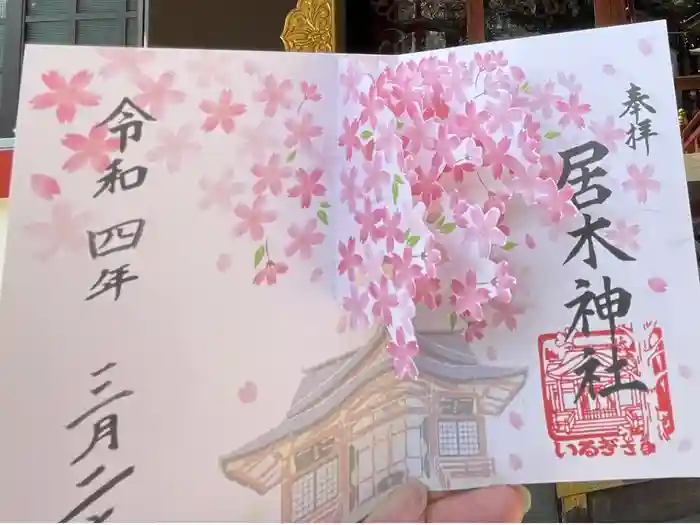 奉拝
居木神社
いるぎさま
令和四年
三月二